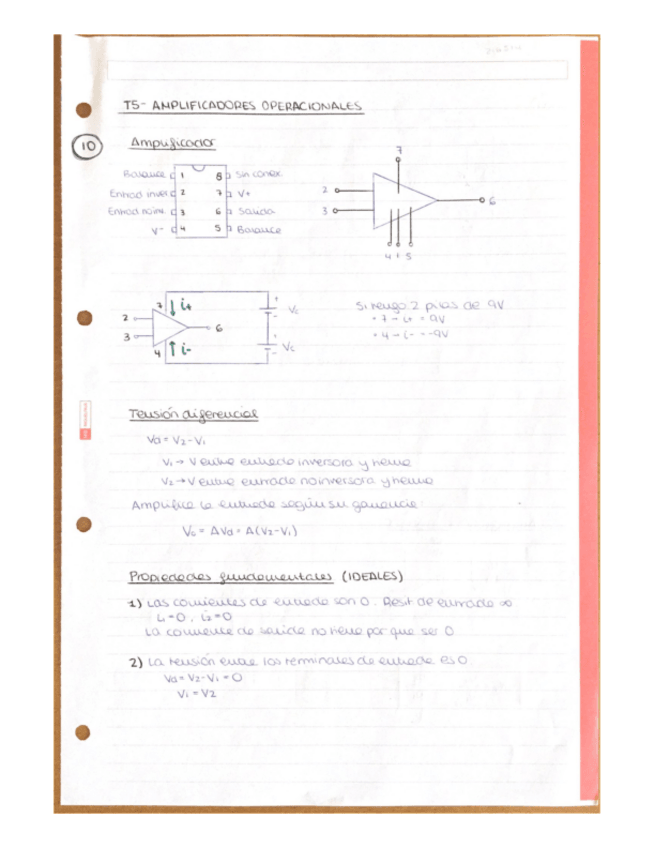 T5- AMPLIFICADORES OPERACIONALES
10
Amplificador
Balance 1 8 Sin conex.
Entrad inver 2 7 V+
Entrad noinv. 3 6 Salida
V- 4 5 Balance
7
2
3
6
4 1 5
7 i+
2
3
6
4 i-
+
Vc
-
+
Vc
-
Si tengo 2 pilas de 9V
• 7 → i+ = 9V
• 4 → i- = -9V
Tensión diferencial
Vd = V2 - V1
V1 → V entre entrada inversora y tierra
V2 → V entre entrada noinversora y tierra
Amplifica la entrada según su ganancia:
= AVd = A(V2-V1)
Propiedades fundamentales (IDEALES)
1) Las corrientes de entrada son 0. Resit de entrada ∞
i1=0, i2=0
La corriente de salida no tiene por que ser 0
2) La tensión entre los terminales de entrada es 0.
Vd = V2-V1 = 0
V1 = V2